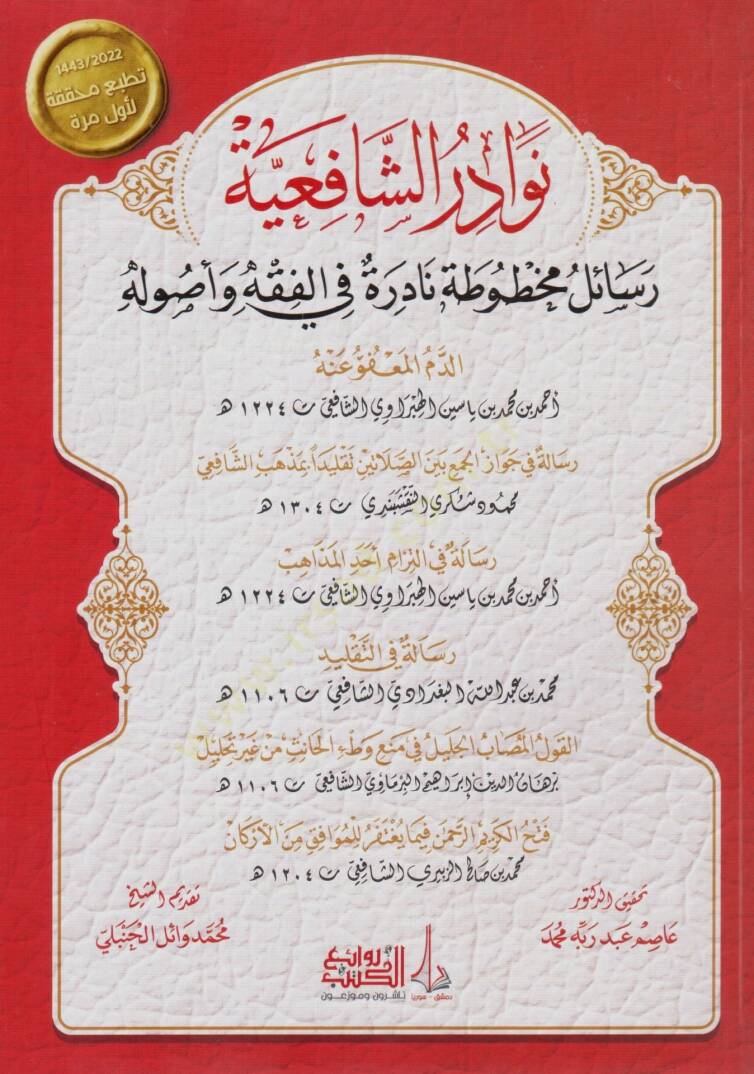 1443/2022
تطبع محققة
لأول مرة
نَوَادِرُ الشَّافِعِيَّة
رَسَائِلُ مَخْطُوطَة نَادِرَةٌ فِي الفِقْهِ وَأُصُولِهِ
الدَّمُ المَعْفُوُّ عَنْهُ
أحمد بن محمد بن ياسين الهبراوي الشافعي ت ١٢٢٤ هـ
رسَالَةٌ في جَوَاز الجَمع بَينَ الصَّلاتَين تَقليداً بمَذهَب الشَّافِعيّ
محمود شكري النقشبندي ت ١٣٠٤ هـ
رسَالَةٌ في التزام أحَدِ المَذاهِب
أحمد بن محمد بن ياسين الهبراوي الشافعي ت ١٢٢٤ هـ
رسَالَةٌ في التَّقليدِ
محمد بن عبد الله البغدادي الشافعي ت ١١٠٦ هـ
القَولُ المُصَابُ الجَليلُ في مَنع وَطءِ الحَانِثِ مِنْ غَيرِ تَحْلِيْل
برهان الدين إبراهيم البرماوي الشافعي ت ١١٠٦ هـ
فَتحُ الكَريم الرَّحمَن فيمَا يُغتَفَرُ لِلمُوَافِقِ مِنَ الأرْكَان
محمد بن صالح الزبيري الشافعي ت ١٢٠٤ هـ
تحقيق الدكتور
عَاصِم عَبد رَبِّه مُحمّد
تقديم الشيخ
مُحَمَّد وَائِل الحَنْبَلِيّ
دار
روائع
الكتب
دمشق - سوريا
ناشرون وموزعون